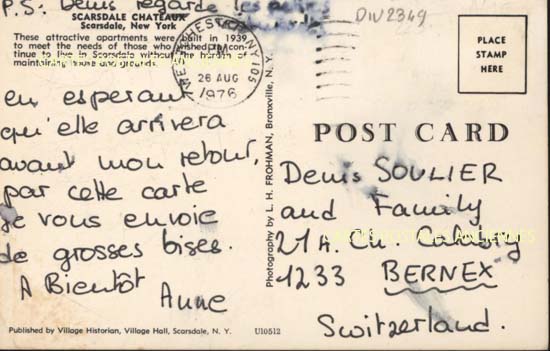 P.S: Denis regarde les
DIV 2349
SCARSDALE CHATEAUX
Scarsdale, New York
These attractive apartments were built in 1939
to meet the needs of those who wished to con-
tinue to live in Scarsdale without the burden of
maintaining house and grounds.
WESTCHESTER NY 105
PM
26 AUG
1976
PLACE
STAMP
HERE
en espérant
qu'elle arrivera
avant mon retour,
par cette carte
je vous envoie
de grosses bises.
A Bientôt
Anne
Photography by L. H. FROHMAN, Bronxville, N. Y.
POST CARD
Denis SOULIER
and Family
21A. Ch.
1233 BERNEX
Switzerland.
Published by Village Historian, Village Hall, Scarsdale, N. Y.
U10512